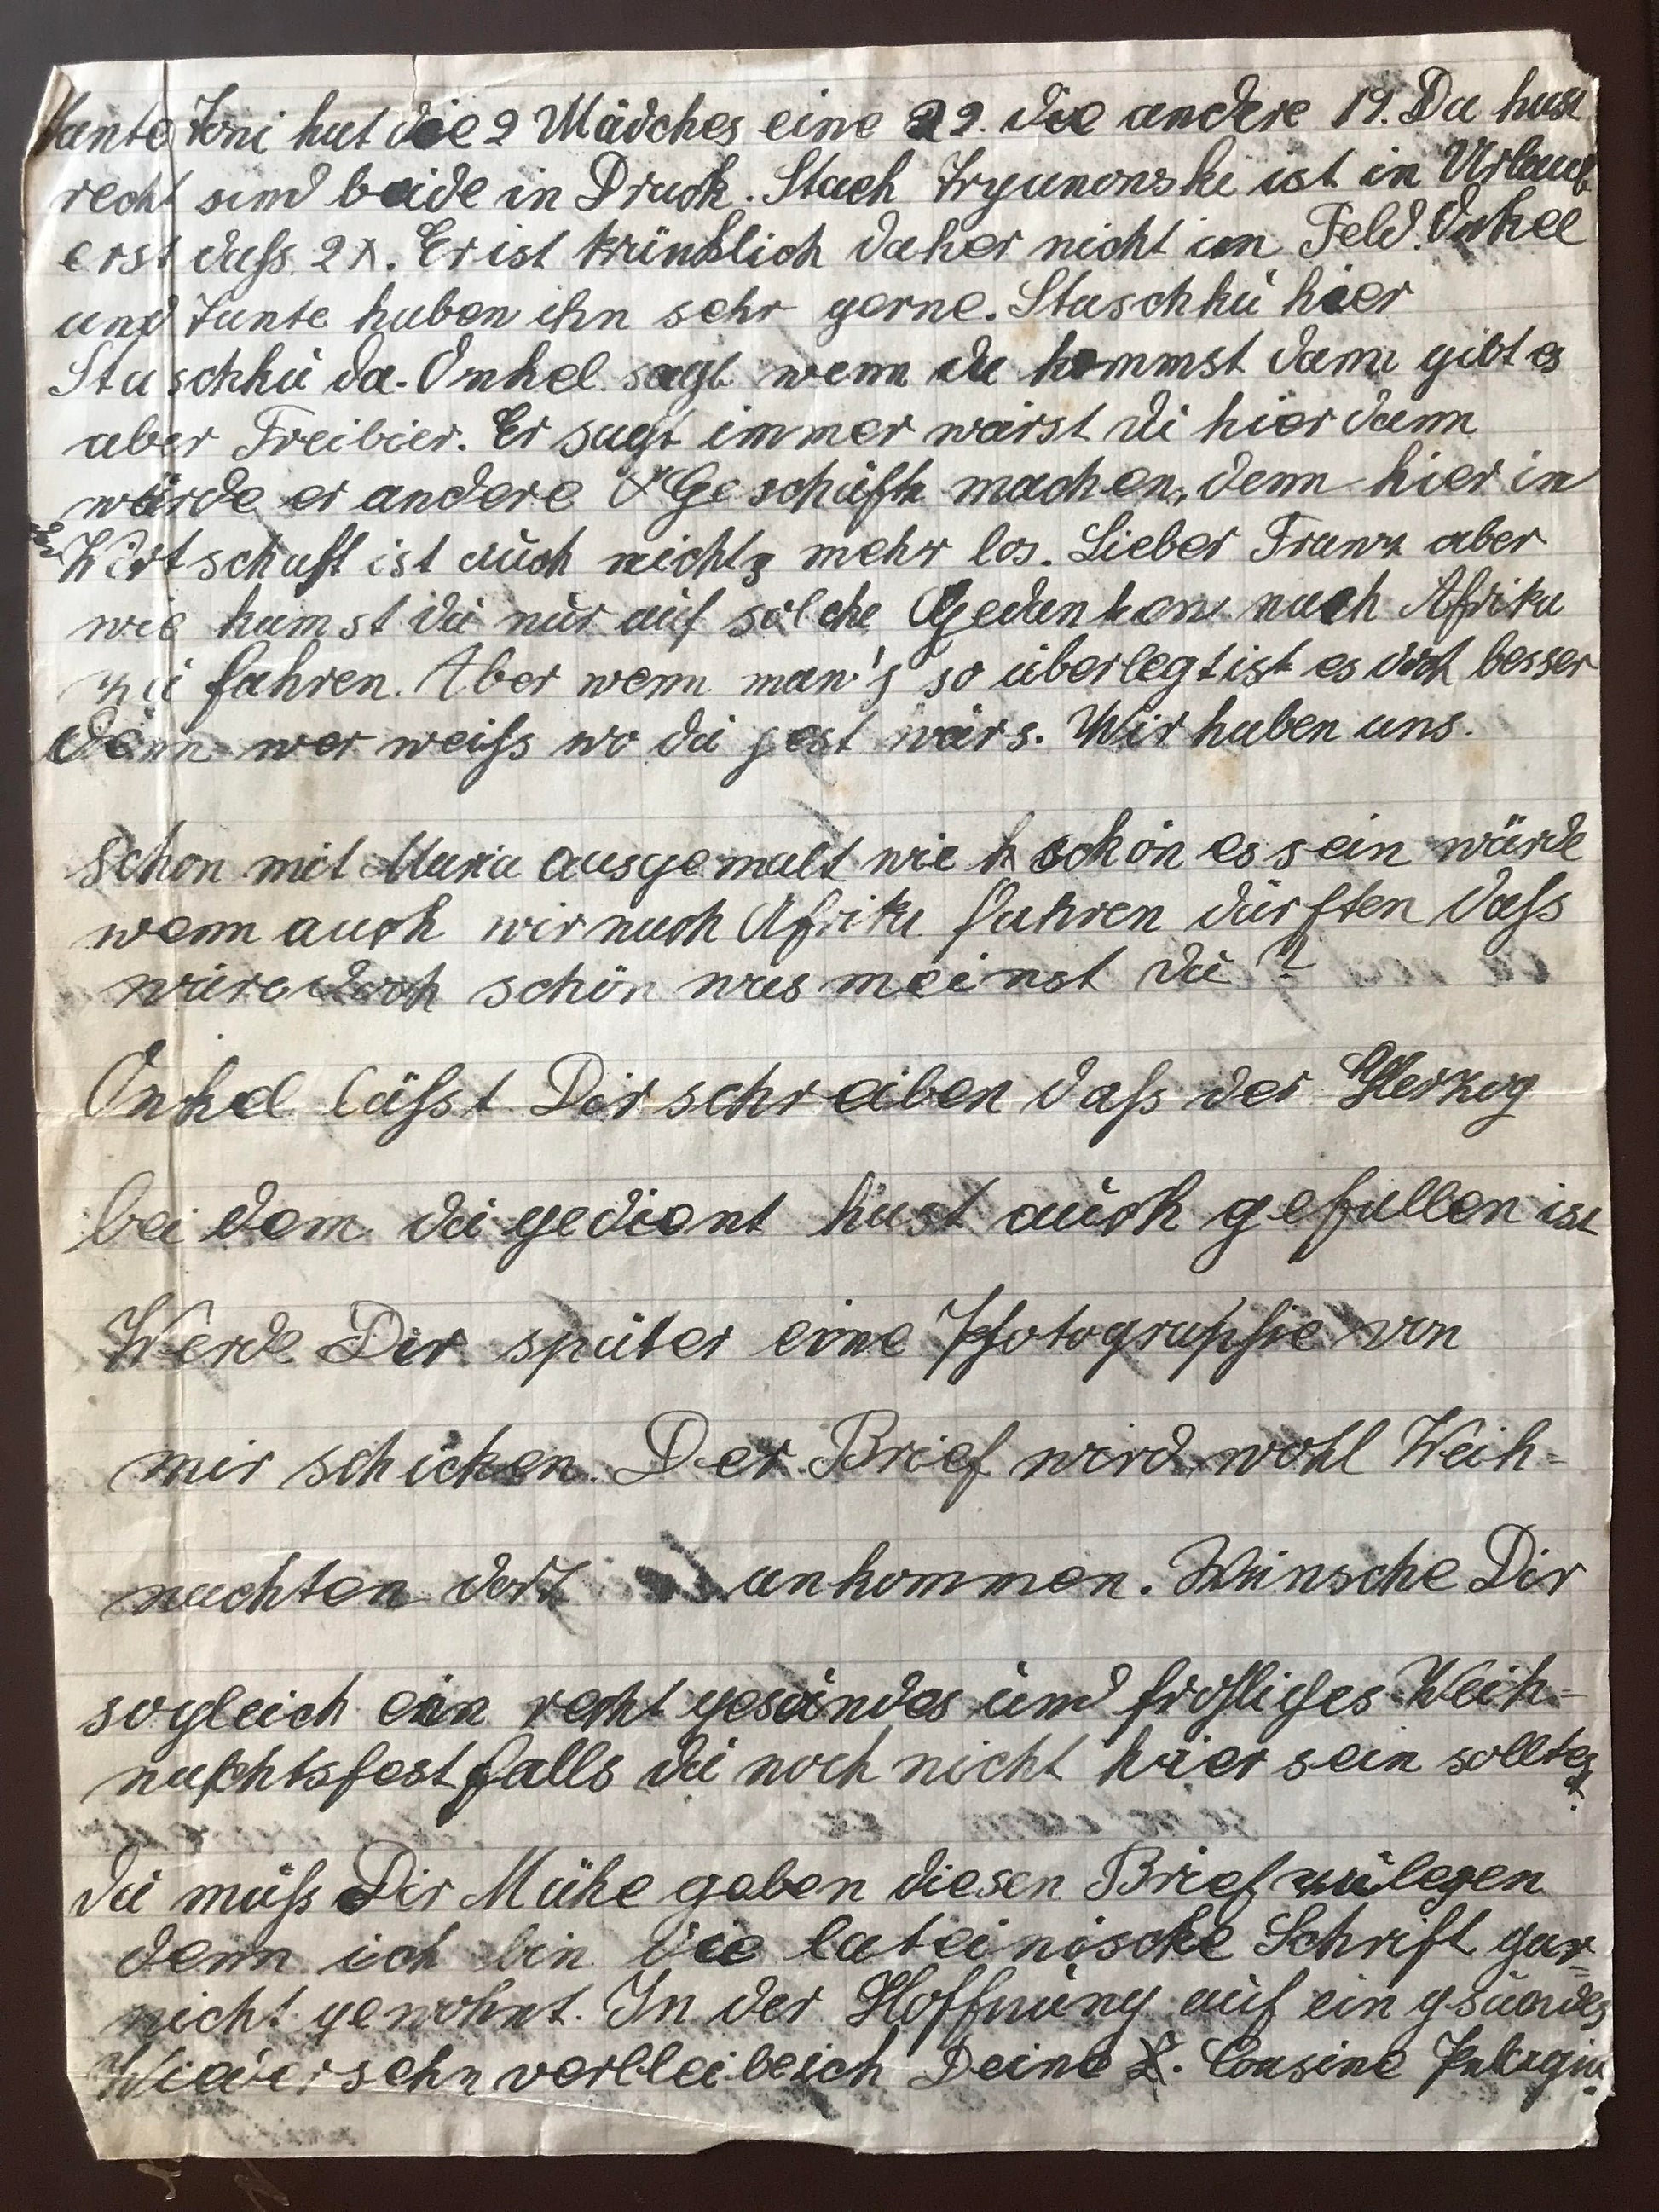 Tante Toni hat die 2 Mädches eine 22. die andere 19. Du hast
recht sind beide in Druck. Stach ist in Urlaub
erst dass 2x. Er ist kränklich daher nicht im Feld. Onkel
und Tante haben ihn sehr gerne. Staschkü hier
Staschkü da. Onkel sagt wenn du kommst dann gibt es
aber Freibier. Er sagt immer wärst du hier dann
würde er andere Geschäfte machen, denn hier in
der Wirtschaft ist auch nichts mehr los. Lieber Franz aber
wie kamst du nur auf solche Gedanken nach Afrika
zu fahren. Aber wenn man's so überlegt ist es doch besser
denn wer weiss wo du jest wärs. Wir haben uns.
schon mit Maria ausgemalt wie schön es sein würde
wenn auch wir nach Afrika fahren dürften dass
wäre doch schön was meinst du?
Onkel lässt Dir schreiben dass der Herzog
bei dem du gedient hast auch gefallen ist
Werde Dir später eine Photographie von
mir schicken. Der Brief wird wohl Weih=
nachten dort ankommen. Wünsche Dir
sogleich ein recht gesundes und frohliches Weih=
nachtsfest falls du noch nicht hier sein solltest.
du muss Dir Mühe geben diesen Brief zu lesen
denn ich bin die lateinische Schrift gar=
nicht gewohnt. In der Hoffnung auf ein gsundes
Wiedersehn verbleibe ich Deine L. Cousine